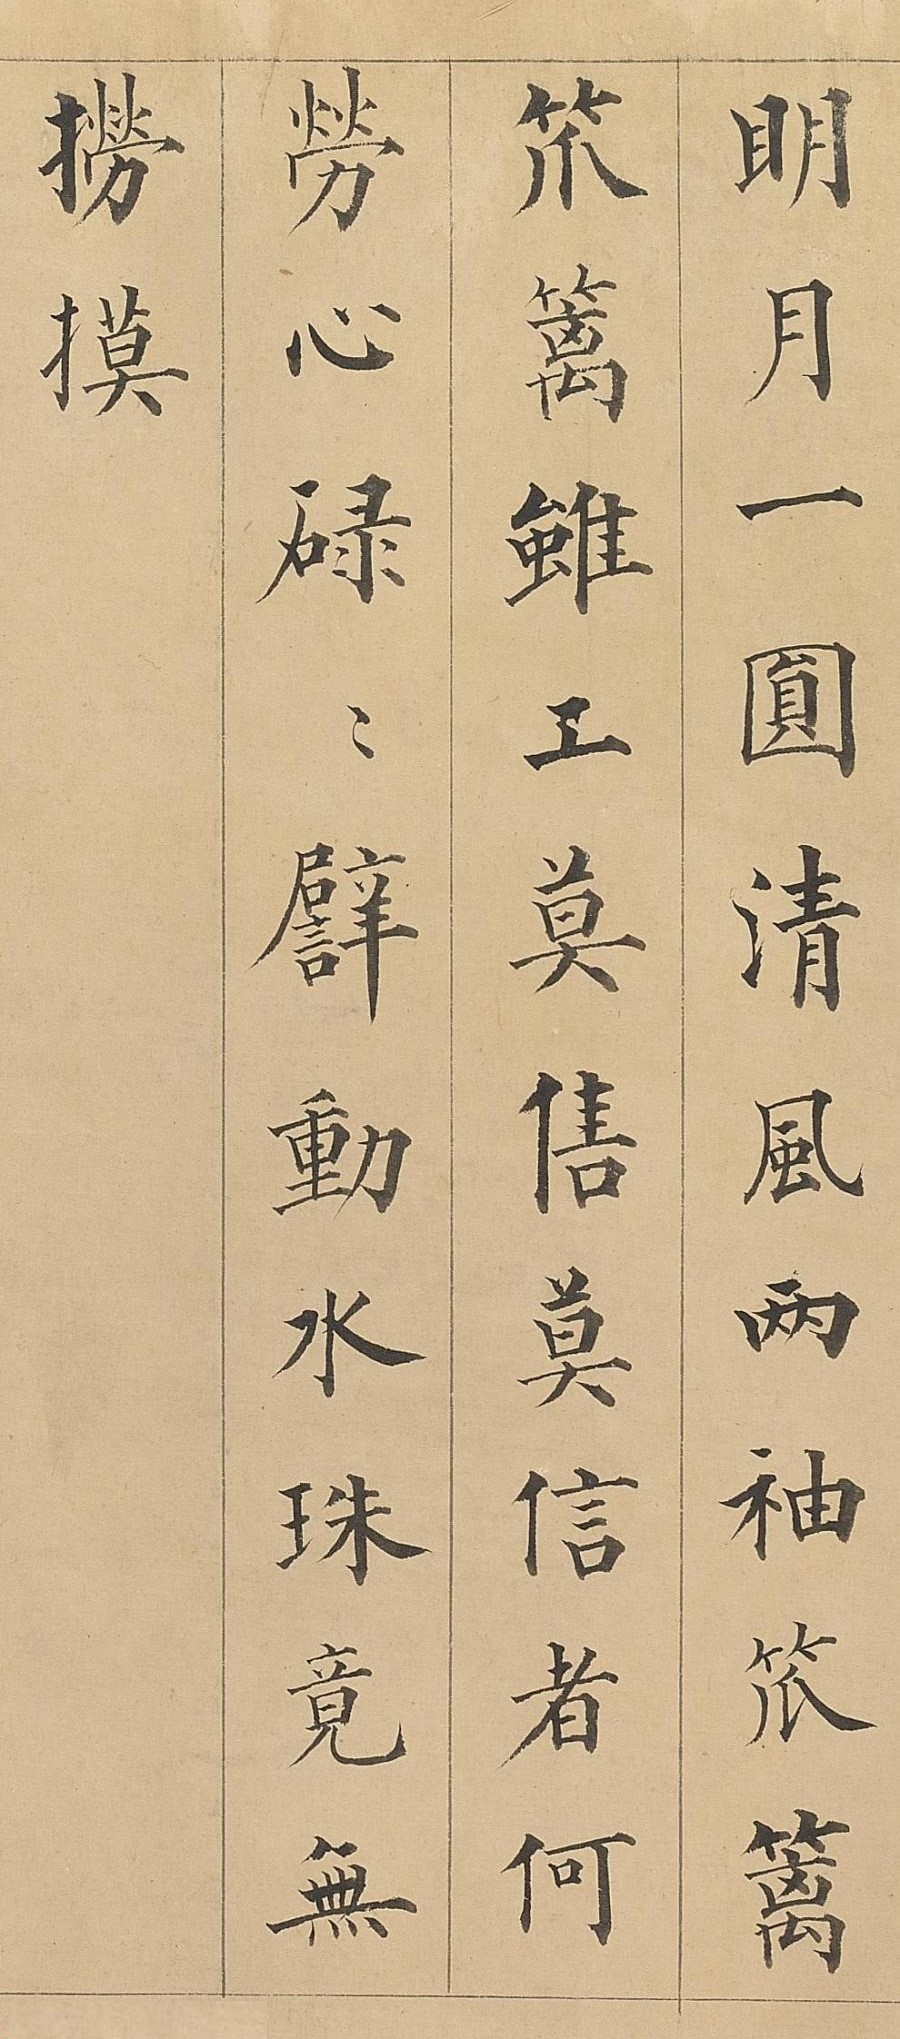 明月一圓清風兩袖笊篱
笊篱雖工莫售莫信者何
勞心碌〻譬動水珠竟無
撈摸